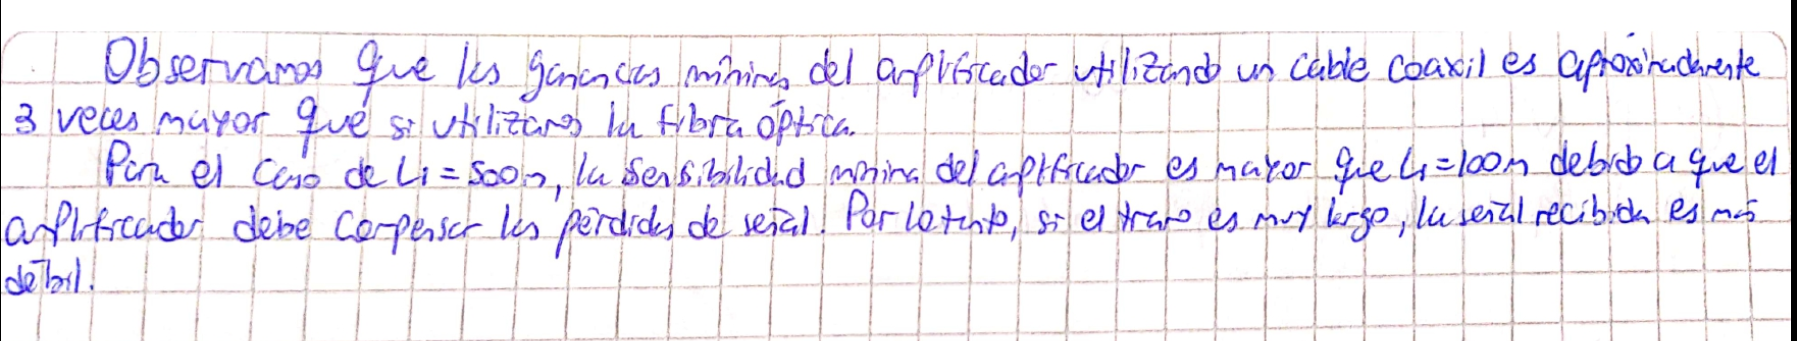 Observamos que las ganancias mínimas del amplificador utilizando un cable coaxil es aproximadamente
3 veces mayor que si utilizamos la fibra óptica.
Para el caso de L1 = 500m, la sensibilidad mínima del amplificador es mayor que L1 = 100m debido a que el
amplificador debe compensar las pérdidas de señal. Por lo tanto, si el tramo es muy largo, la señal recibida es más
débil.